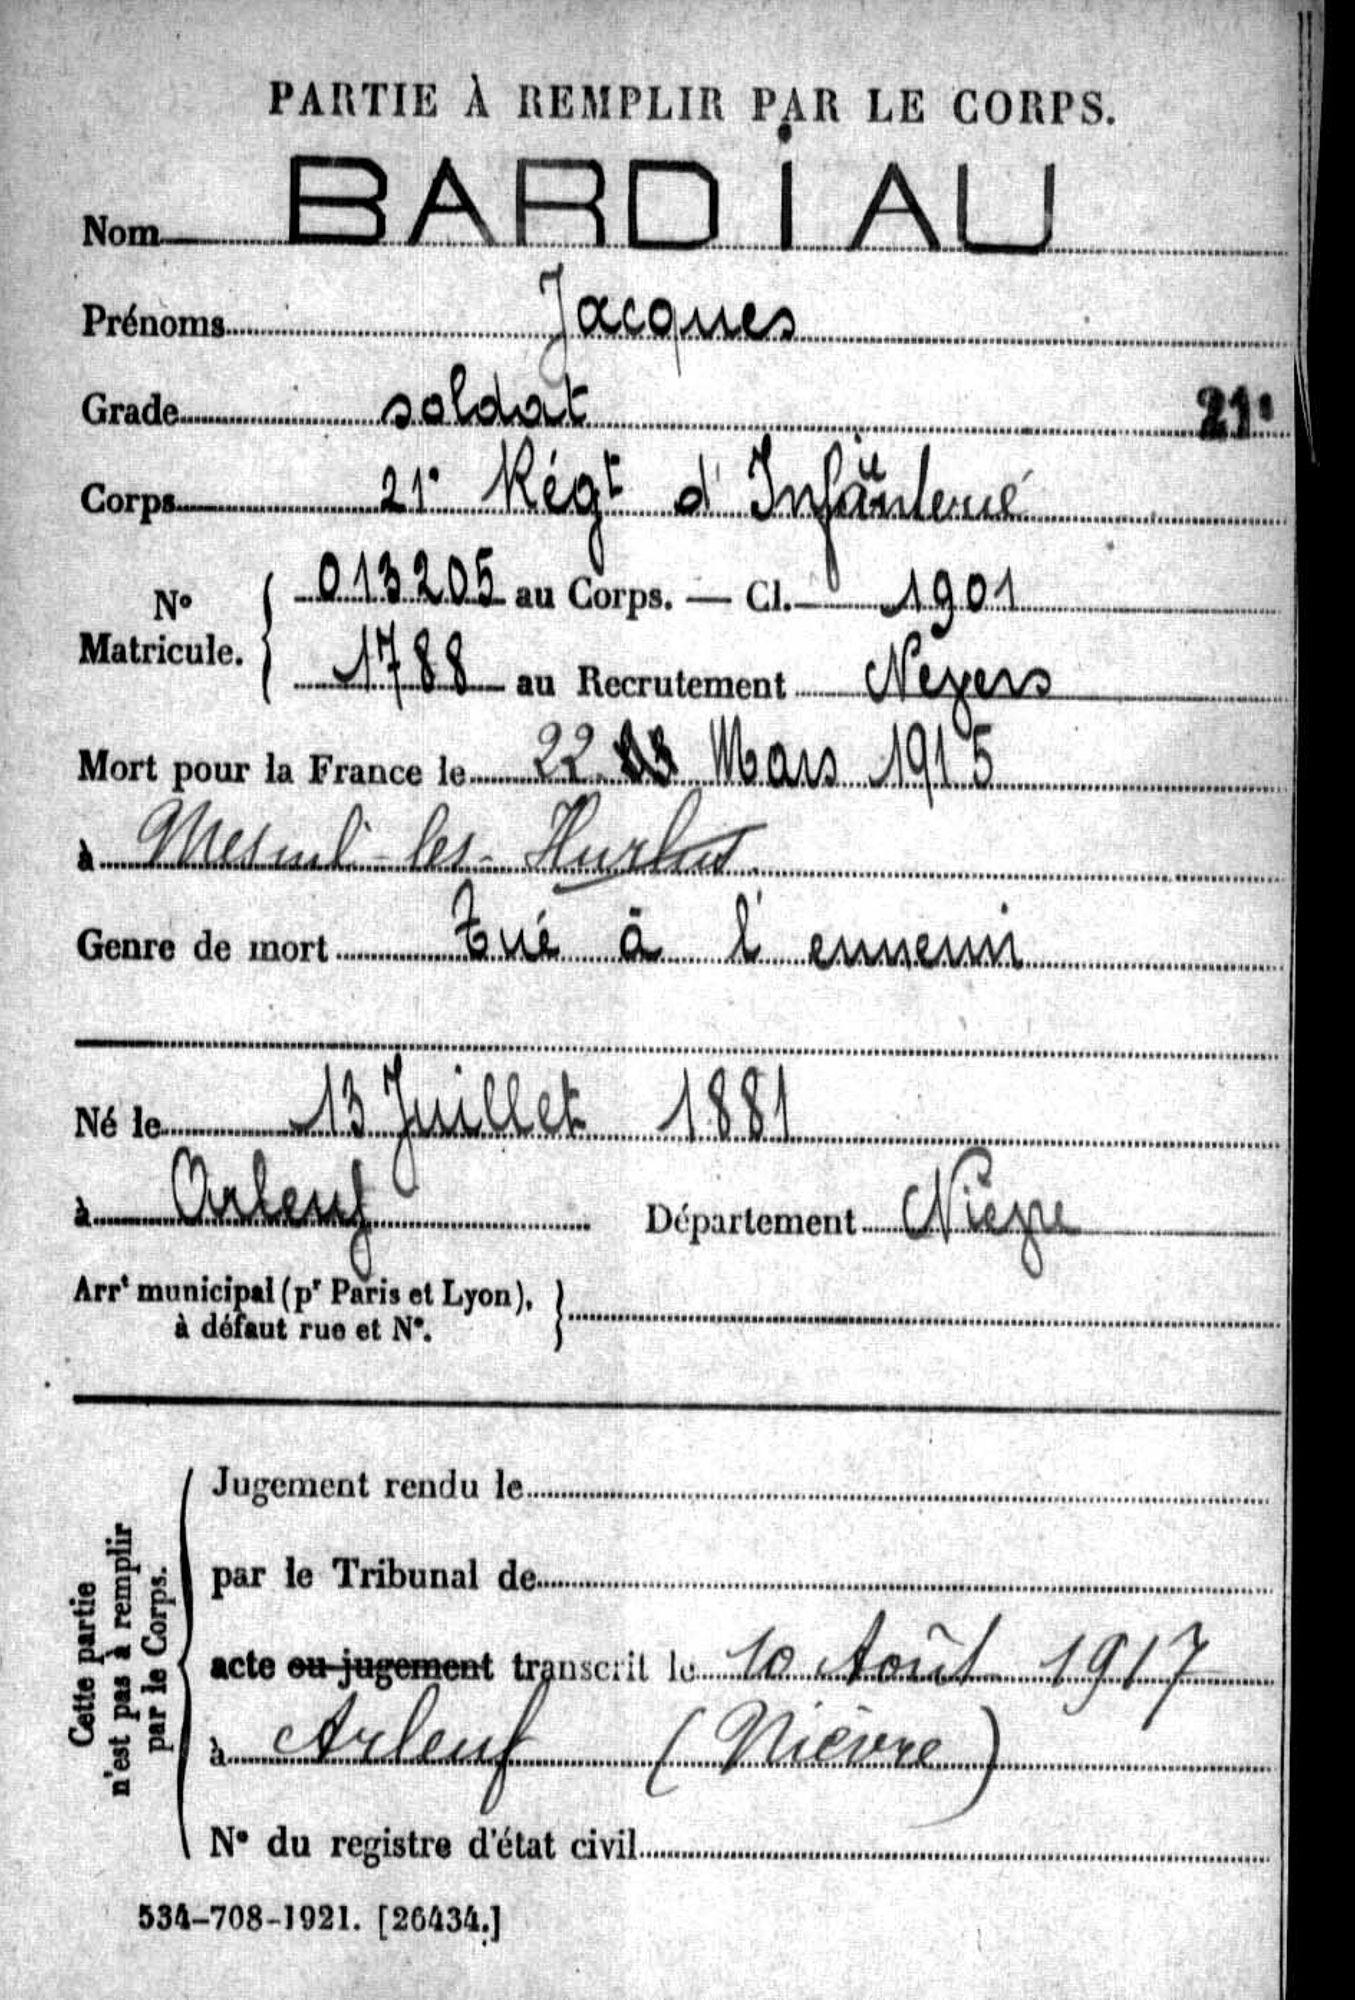 PARTIE À REMPLIR PAR LE CORPS.
Nom BARDiAU
Prénoms Jacques
Grade soldat
21e
Corps 21e Régt d'Infanterie
No Matricule. { 013205 au Corps. — Cl. 1901
1788 au Recrutement Nevers
Mort pour la France le 22 Mars 1915
à Mesnil-les-Hurlus
Genre de mort Tué à l'ennemi
Né le 13 Juillet 1881
à Arleuf Département Nièvre
Arrt municipal (pr Paris et Lyon),
à défaut rue et No. }
Cette partie
n'est pas à remplir
par le Corps.
Jugement rendu le
par le Tribunal de
acte ou jugement transcrit le 10 Août 1917
à Arleuf (Nièvre)
No du registre d'état civil
534-708-1921. [26434.]